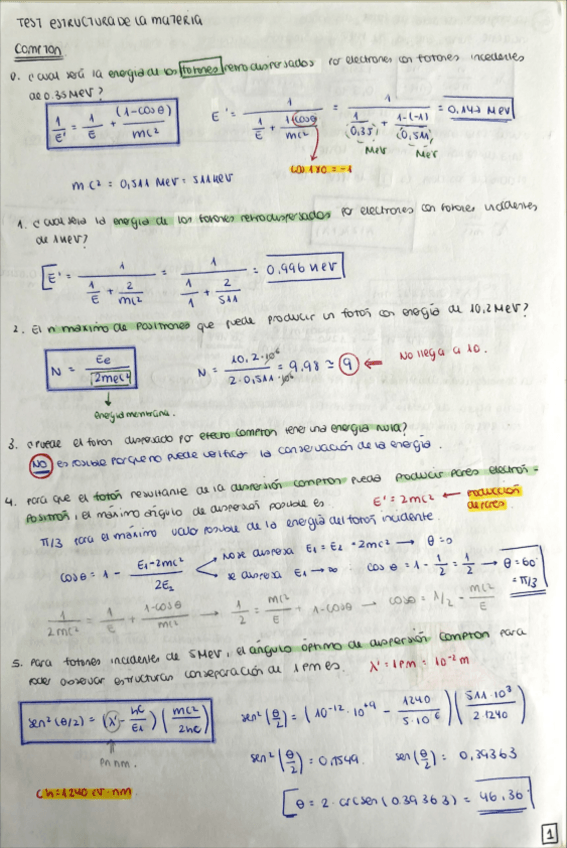 TEST ESTRUCTURA DE LA MATERIA
COMPTON.
0. ¿Cuál será la energía de los fotones retrodispersados por electrones con fotones incidentes
de 0.35 MeV?
1/E' = 1/E + (1-cosθ)/mc²
E' = 1/(1/E + 1-cosθ/mc²) = 1/(1/(0,35) + 1-(-1)/(0,511)) = 0,147 MeV
MeV MeV
cos 180 = -1
mc² = 0,511 MeV = 511 KeV
1. ¿Cuál será la energía de los fotones retrodispersados por electrones con fotones incidentes
de 1 KeV?
E' = 1/(1/E + 2/mc²) = 1/(1/1 + 2/511) = 0,996 KeV
2. El n máximo de positrones que puede producir un fotón con energía de 10,2 MeV?
N = Ee/2mec²
N = 10,2·10⁶/2·0,511·10⁶ = 9,98 ≅ 9 ← No llega a 10.
energía mínima.
3. ¿Puede el fotón dispersado por efecto compton tener una energía nula?
NO es posible porque no puede verificar la conservación de la energía.
4. Para que el fotón resultante de la dispersión compton pueda producir pares electrón-
positrón, el máximo ángulo de dispersión posible es E' = 2mc² ← producción
de pares.
π/3 para el máximo valor posible de la energía del fotón incidente.
cosθ = 1 - E1-2mc²/2E2
No se dispersa E1 = E2 = 2mc² → θ = 0
se dispersa E1 → ∞ cosθ = 1 - 1/2 = 1/2 → θ = 60
= π/3
1/2mc² = 1/E + 1-cosθ/mc² → 1/2 = mc²/E + 1-cosθ → cosθ = 1/2 - mc²/E
5. Para fotones incidentes de 5 MeV, el ángulo óptimo de dispersión compton para
poder observar estructuras con separación de 1 pm es. λ' = 1 pm = 10⁻¹² m
sen²(θ/2) = (λ' - hc/E1)(mc²/2hc)
sen²(θ/2) = (10⁻¹²·10⁺⁹ - 1240/5·10⁶)(511·10³/2·1240)
en nm.
sen²(θ/2) = 0,1549. sen(θ/2) = 0,39363
ch = 1240 eV·nm.
θ = 2·arcsen(0.39363) = 46,36
1